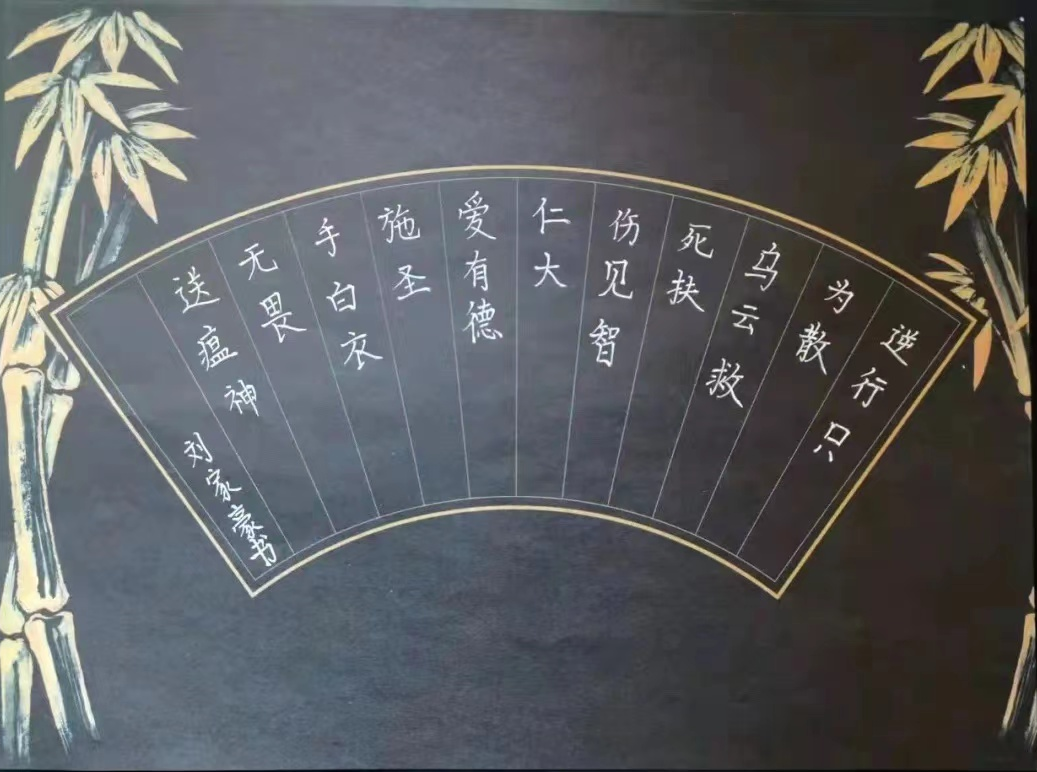 逆行只
为散
乌云救
死扶
伤见智
仁大
爱有德
施圣
手白衣
无畏
送瘟神
刘家豪书